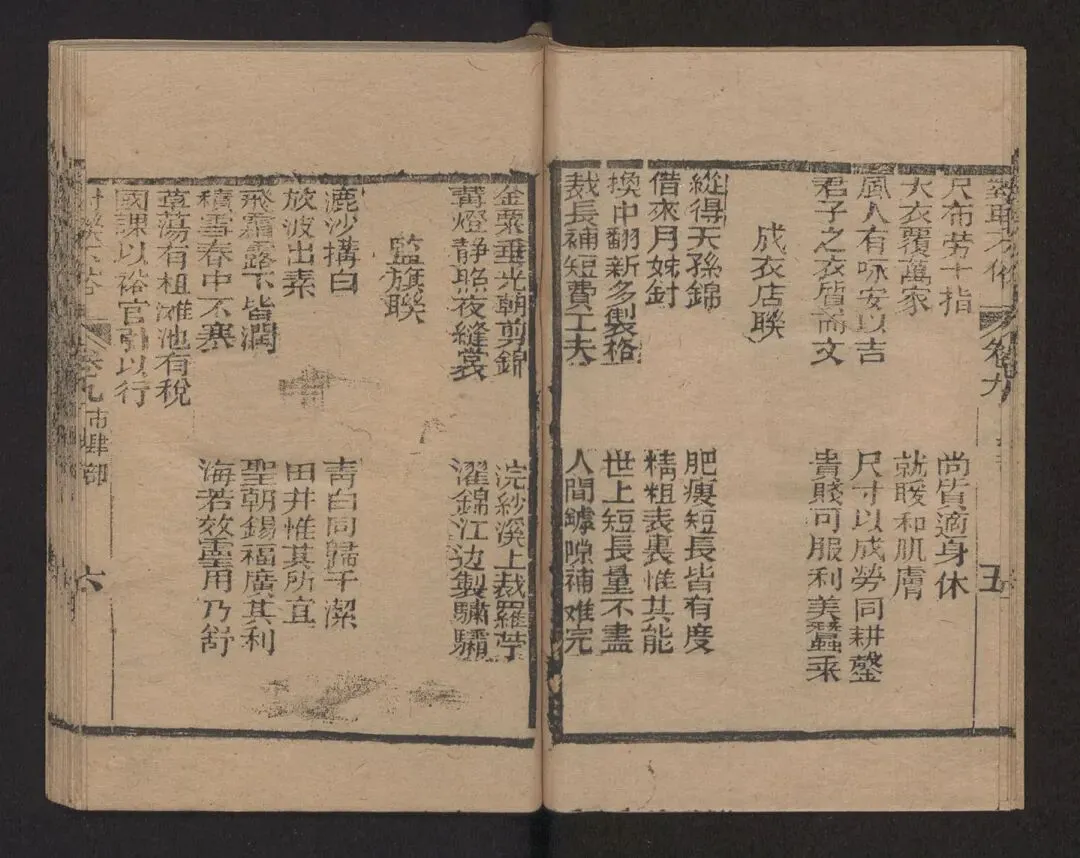 對聯不俗 卷九 五
尺布勞十指 尚質適身休
大衣覆萬家 就暖和肌膚
風人有咏安以吉 尺寸以成勞同耕鑿
君子之衣質而文 貴賤可服利美蠶釆
成衣店聯
縱得天孫錦 肥瘦短長皆有度
借來月姊針 精粗表裏惟其能
換中翻新多製格 世上短長量不盡
裁長補短費工夫 人間罅隙補难完
金粟垂光朝剪錦 浣紗溪上裁羅苧
篝燈静照夜縫裳 濯錦江边製驌驦
監旗聯
漉沙搆白 青白同歸于潔
放波出素 田井惟其所宜
飛霜露下皆潤 聖朝錫福廣其利
積雪春中不寒 海若效靈用乃舒
草蕩有租滩池有稅
國課以裕官引以行
對聯不俗 卷九 市肆部 六